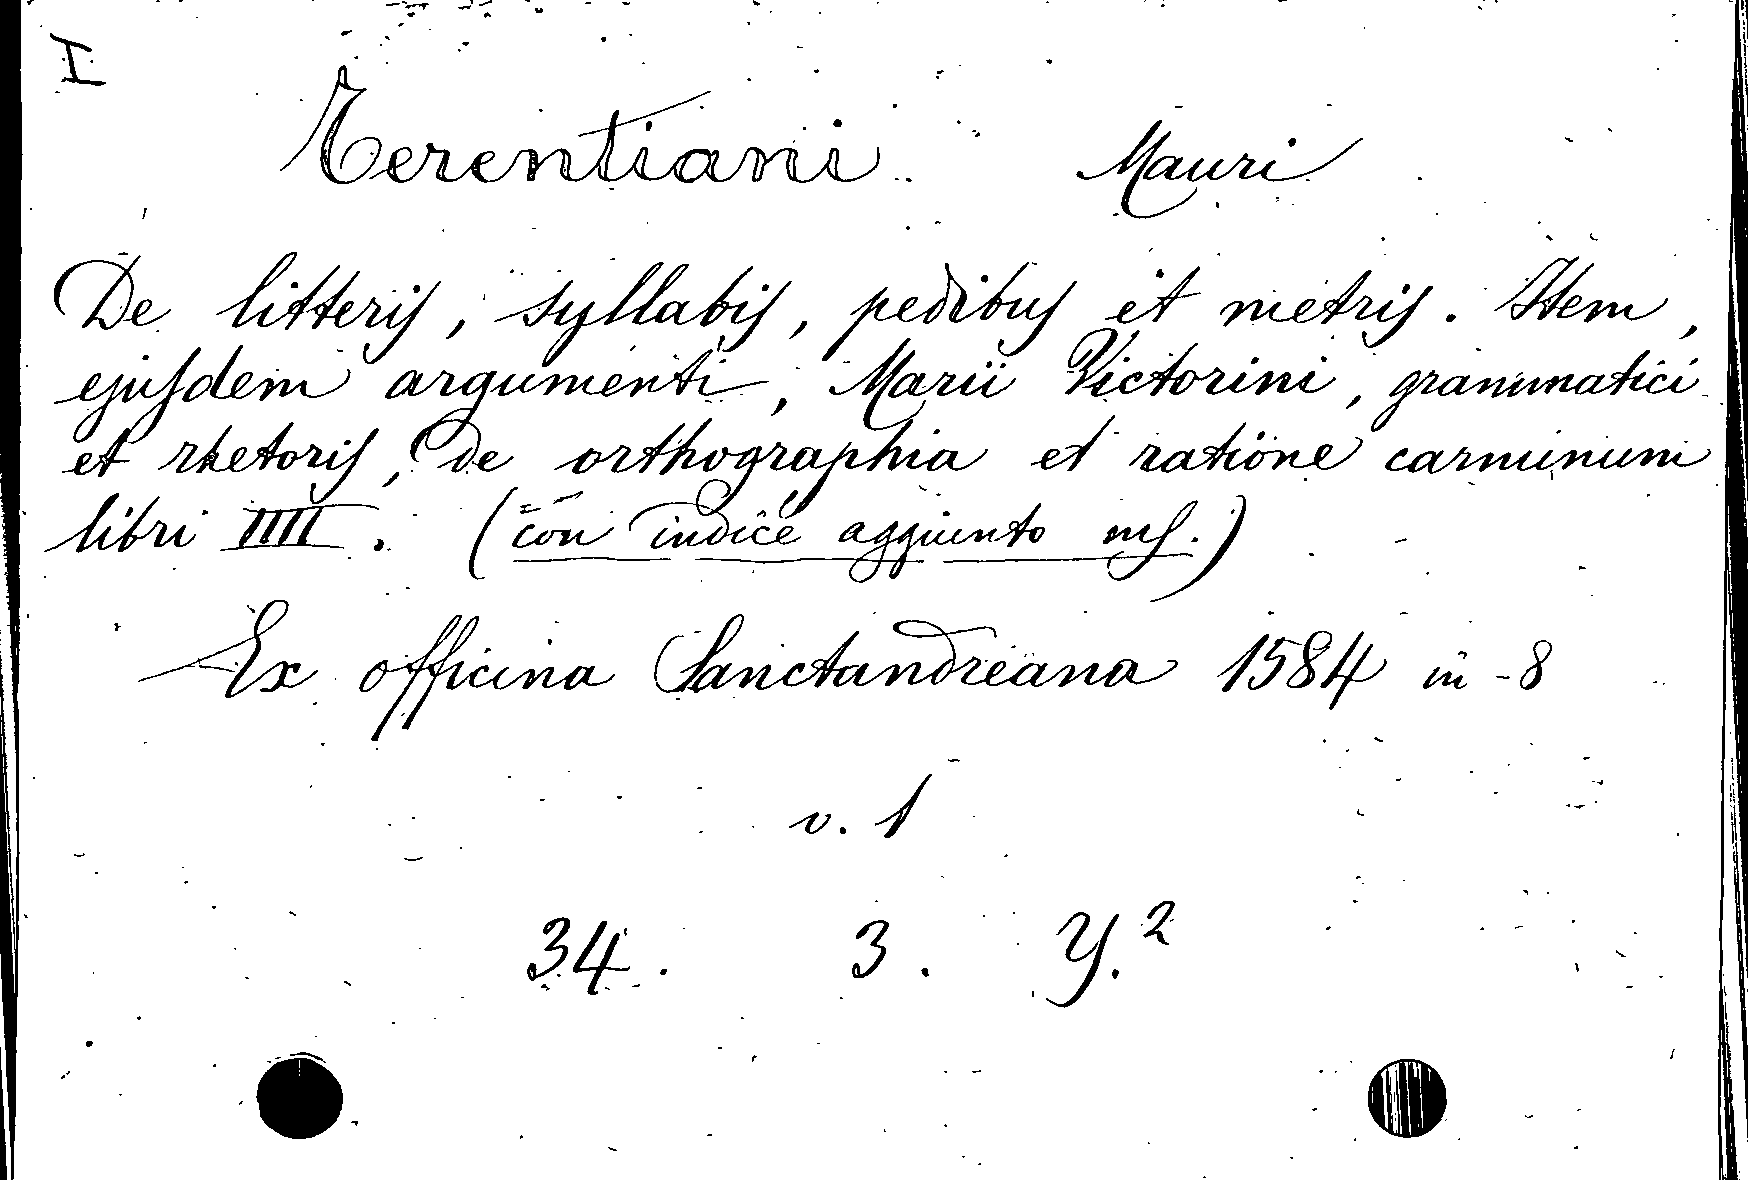 I
Terentiani Mauri
De litteris, syllabis, pedibus et metris. Item,
ejusdem argumenti, Marii Victorini, grammatici
et rhetoris, de orthographia et ratione carminum
libri IIII. (con indice aggiunto ms.)
Ex officina Sanctandreana 1584 in-8
v. 1
34. 3. Y.²